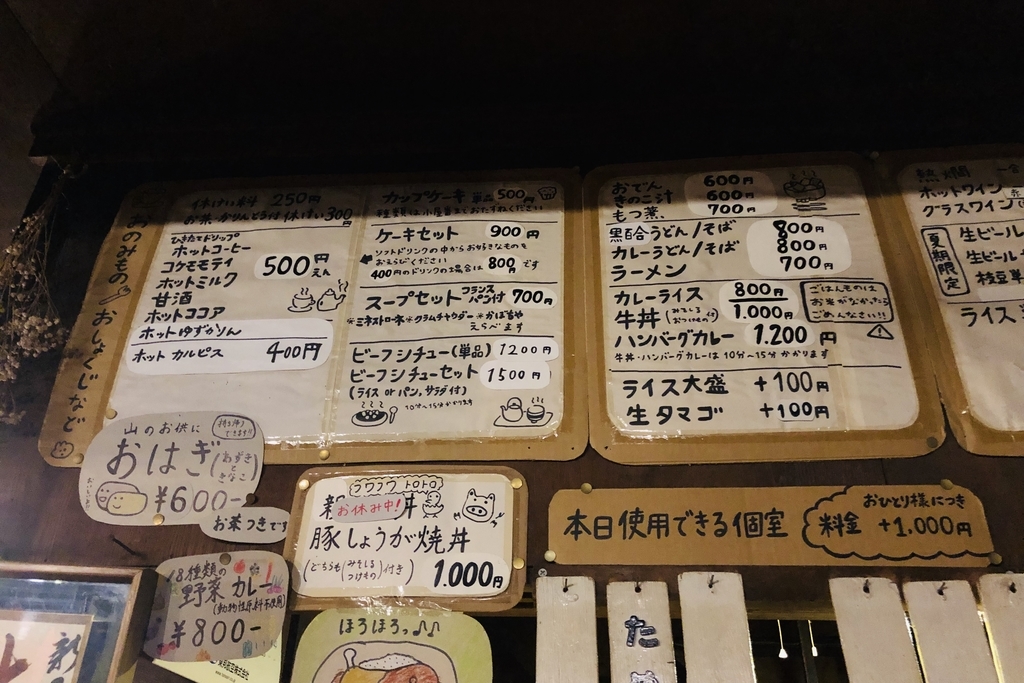 おのみもの おしょくじなど
休けい料 250円
お茶・かりんとう付 休けい 300円
ひきたてドリップ
ホットコーヒー
コケモモテイ
ホットミルク
甘酒
ホットココア
500円
えん
ホットゆずかりん
ホット カルピス 400円
カップケーキ 単品 500円
ケーキセット 900円
ソフトドリンクの中からお好きなものを
おえらびください
400円のドリンクの場合は 800円です
スープセット フランスパン付 700円
※ミネストローネ ※クラムチャウダー ※かぼちゃ
えらべます
ビーフシチュー(単品) 1200円
ビーフシチューセット 1500円
(ライス or パン, サラダ付)
10分〜15分かかります
おでん 600円
きのこ汁 600円
もつ煮、 700円
黒百合うどん/そば 800円
カレーうどん/そば 800円
ラーメン 700円
カレーライス 800円
牛丼(みそしるおつけもの付) 1.000円
ハンバーグカレー 1.200円
ごはんものは
お米がなかったら
ごめんなさい!!
牛丼・ハンバーグカレーは10分〜15分かかります
ライス大盛 +100円
生タマゴ +100円
熱燗 一合
ホットワイン
グラスワイン
夏期限定
生ビール
生ビール
枝豆単
ライス
山のお供に
持ち帰り
できます!!
おはぎ(あずきときなこ)
¥600-
お茶つきです
フワフワ トロトロ
お休み中!
丼
豚しょうが焼丼
(どちらも(みそしるつけもの)付き) 1.000円
本日使用できる個室
おひとり様につき
料金 +1,000円
8種類の
野菜カレー
(動物性原料不使用)
¥800-
ほろほろっ♪♪
た
新